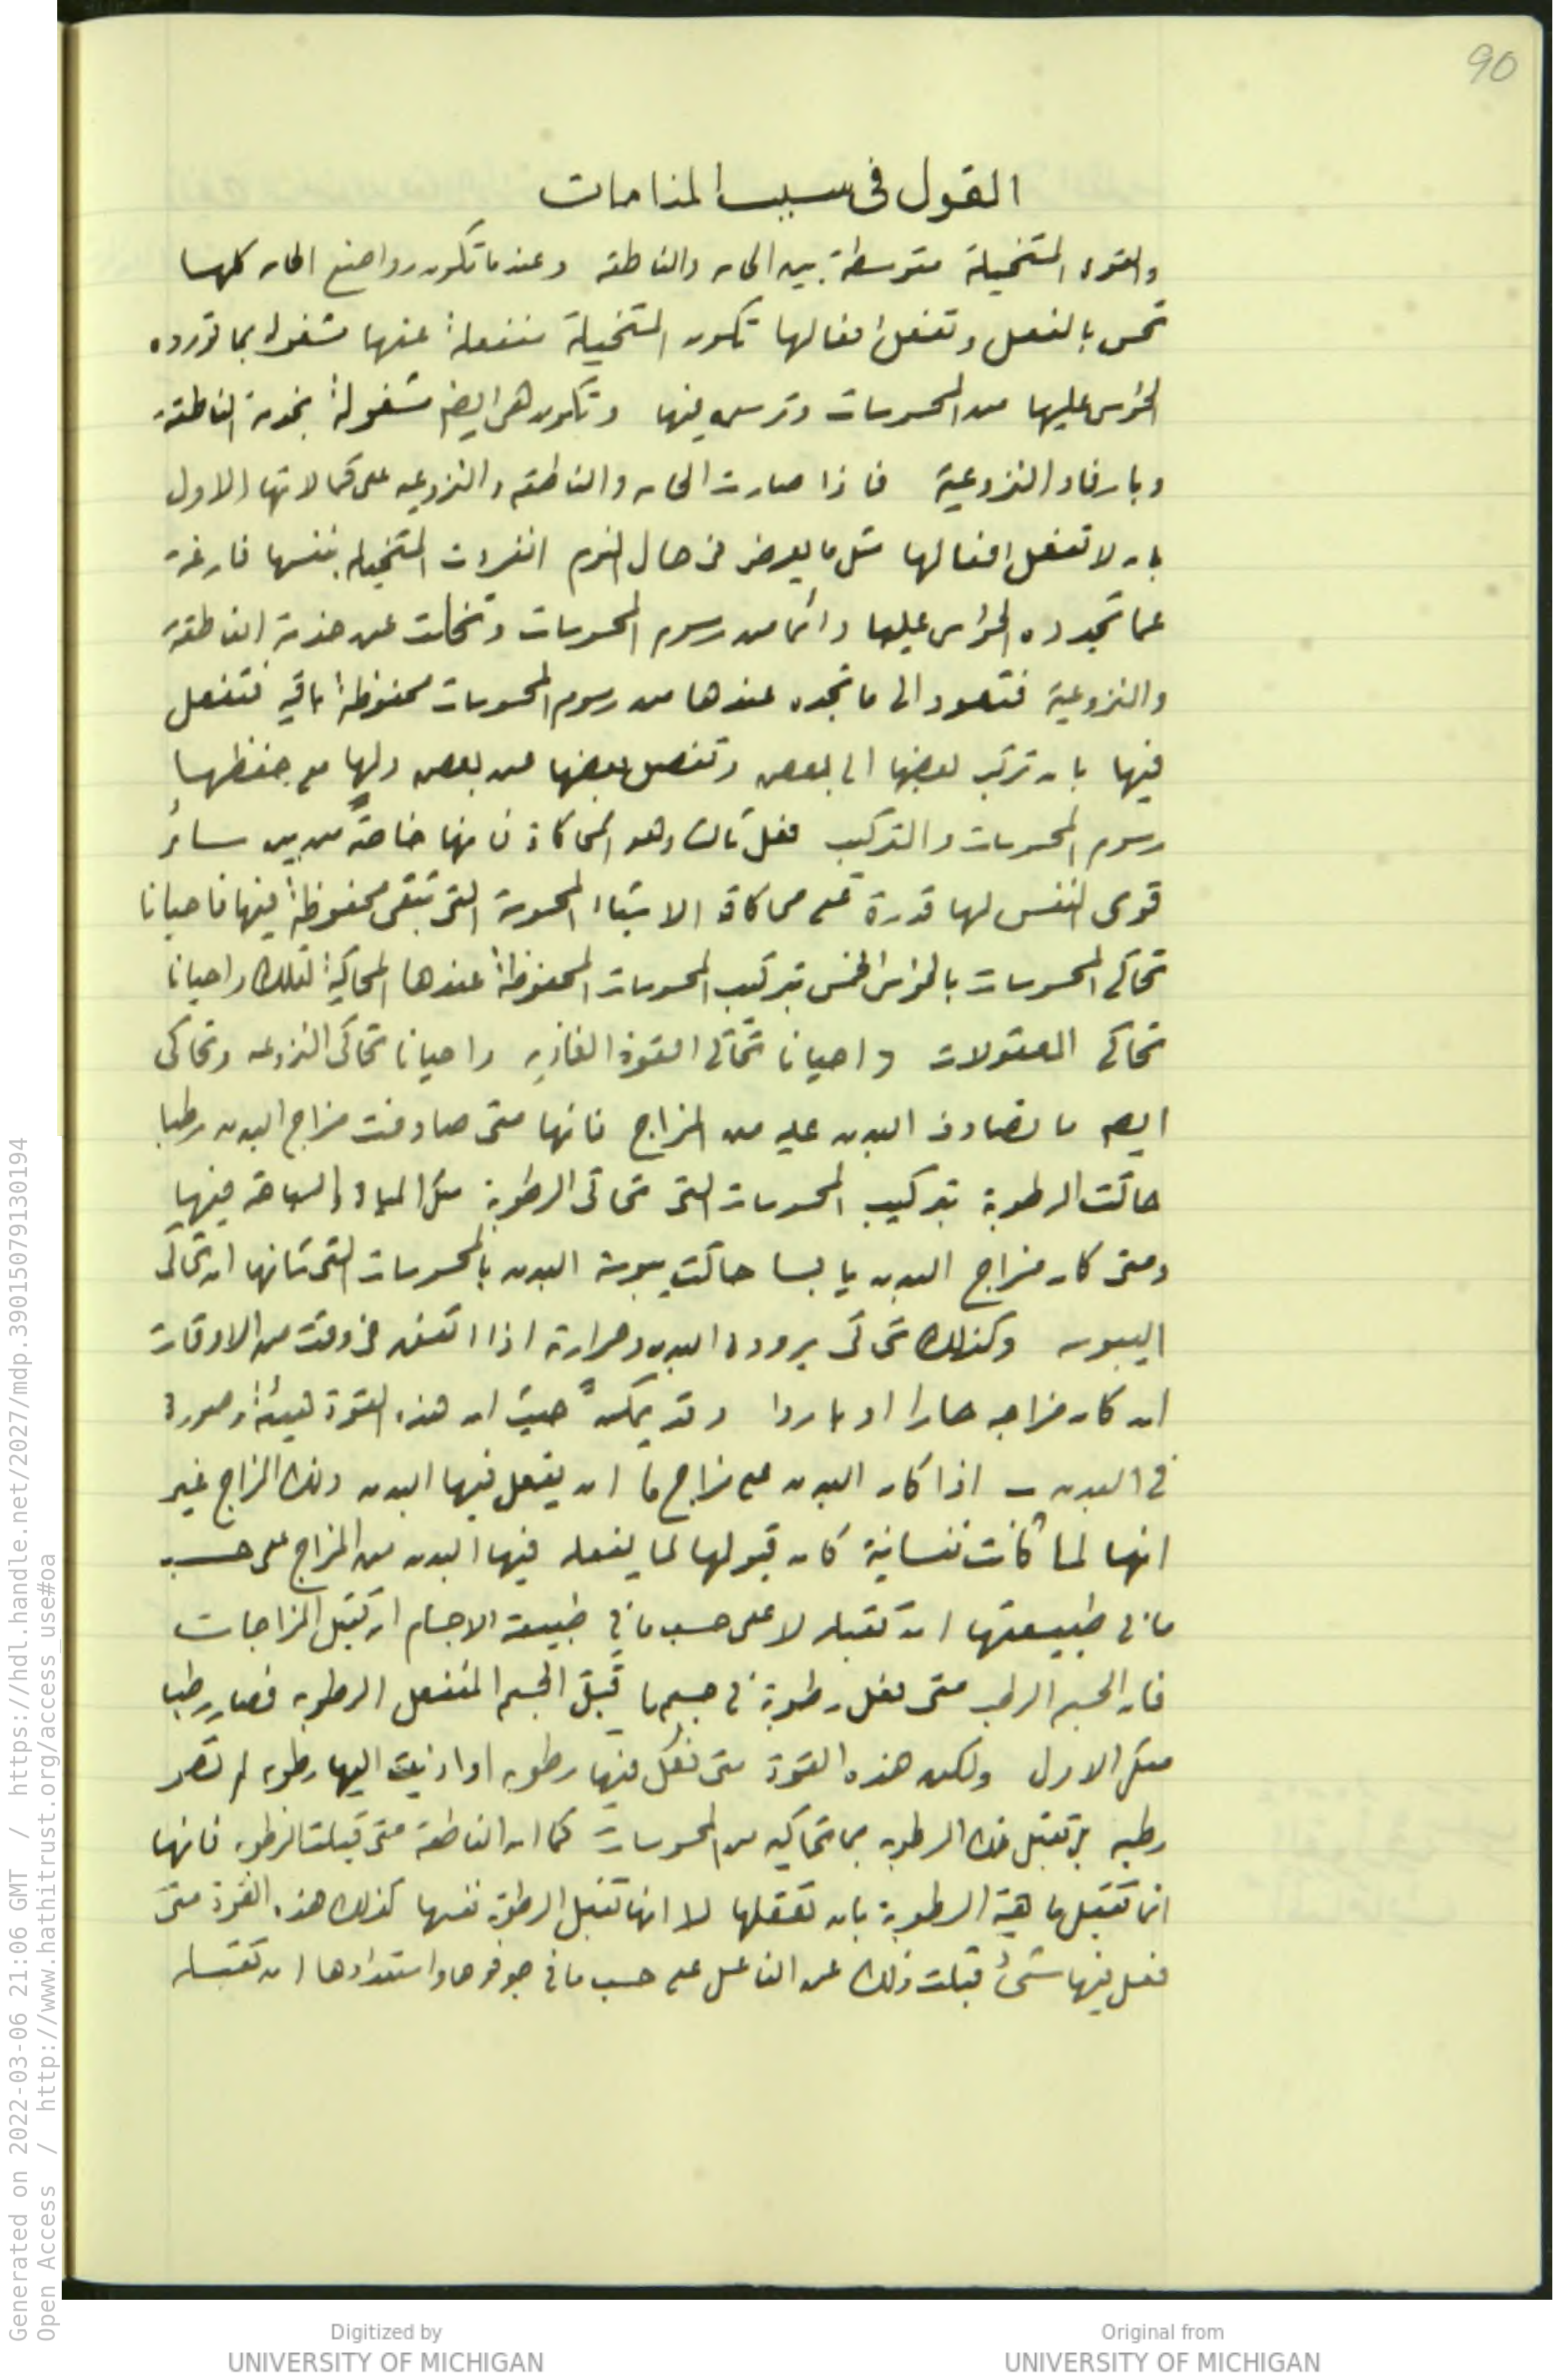 90
القول فى سبب المنامات
والقوه المتخيلة متوسطة بين الحاسه والناطقه وعندما تكون رواضع الحاسه كلها
تحس بالفعل وتفعل افعالها تكون المتخيلة منفعلة عنها مشغولة بما تورده
الحواس عليها من المحسوسات وترسمه فيها وتكون هى ايضا مشغولة بخدمة الناطقة
وبارفاد النزوعية فاذا صارت الحاسه والناطقه والنزوعيه على كمالاتها الاول
بان لا تفعل افعالها مثل ما يعرض فى حال النوم انفردت المتخيله بنفسها فارغة
عما تجدده الحواس عليها دائما من رسوم المحسوسات وتخلت عن خدمة الناطقة
والنزوعية فتعود الى ما تجده عندها من رسوم المحسوسات محفوظة باقيه فتفعل
فيها بان تركب بعضها الى بعض وتفصل بعضها من بعض ولها مع حفظها
رسوم المحسوسات والتركيب فعل ثالث وهو المحاكاة فانها خاصة من بين سائر
قوى النفس لها قدرة على محاكاة الاشياء المحسوسة التى تبقى محفوظة فيها فاحيانا
تحاكى المحسوسات بالحواس الخمس بتركيب المحسوسات المحفوظة عندها المحاكية لتلك واحيانا
تحاكى المعقولات واحيانا تحاكى القوة الغاذيه واحيانا تحاكى النزوعيه وتحاكى
ايضا ما تصادف البدن عليه من المزاج فانها متى صادفت مزاج البدن رطبا
حاكت الرطوبة بتركيب المحسوسات التى تحاكى الرطوبة مثل المياه والسباحة فيها
ومتى كان مزاج البدن يابسا حاكت يبوسة البدن بالمحسوسات التى شانها ان تحاكى
اليبوسه وكذلك تحاكى برودة البدن وحرارته اذا اتفق فى وقت من الاوقات
ان كان مزاجه حارا او باردا وقد يمكن حيث ان هذه القوة هيئة وصورة
فى البدن اذا كان البدن على مزاج ما ان يفعل فيها البدن ذلك المزاج غير
انها لما كانت نفسانية كان قبولها لما يفعله فيها البدن من المزاج على حسب
ما فى طبيعتها ان تقبله لا على حسب ما فى طبيعة الاجسام ان تقبل المزاجات
فان الجسم الرطب متى فعل رطوبة فى جسم ما قبل الجسم المنفعل الرطوبه فصار رطبا
مثل الاول ولكن هذه القوة متى فعل فيها رطوبه او ادنيت اليها رطوبه لم تصر
رطبه بل تقبل تلك الرطوبه بما تحاكيه من المحسوسات كما ان الناطقة متى قبلت الرطوبه فانها
انما تقبل ماهية الرطوبة بان تعقلها لا انها تقبل الرطوبة نفسها كذلك هذه القوة متى
فعل فيها شئ قبلت ذلك عن الفاعل على حسب ما فى جوهرها واستعدادها ان تقبله
Generated on 2022-03-06 21:06 GMT / https://hdl.handle.net/2027/mdp.39015079130194
Open Access / http://www.hathitrust.org/access_use#oa
Digitized by
UNIVERSITY OF MICHIGAN
Original from
UNIVERSITY OF MICHIGAN